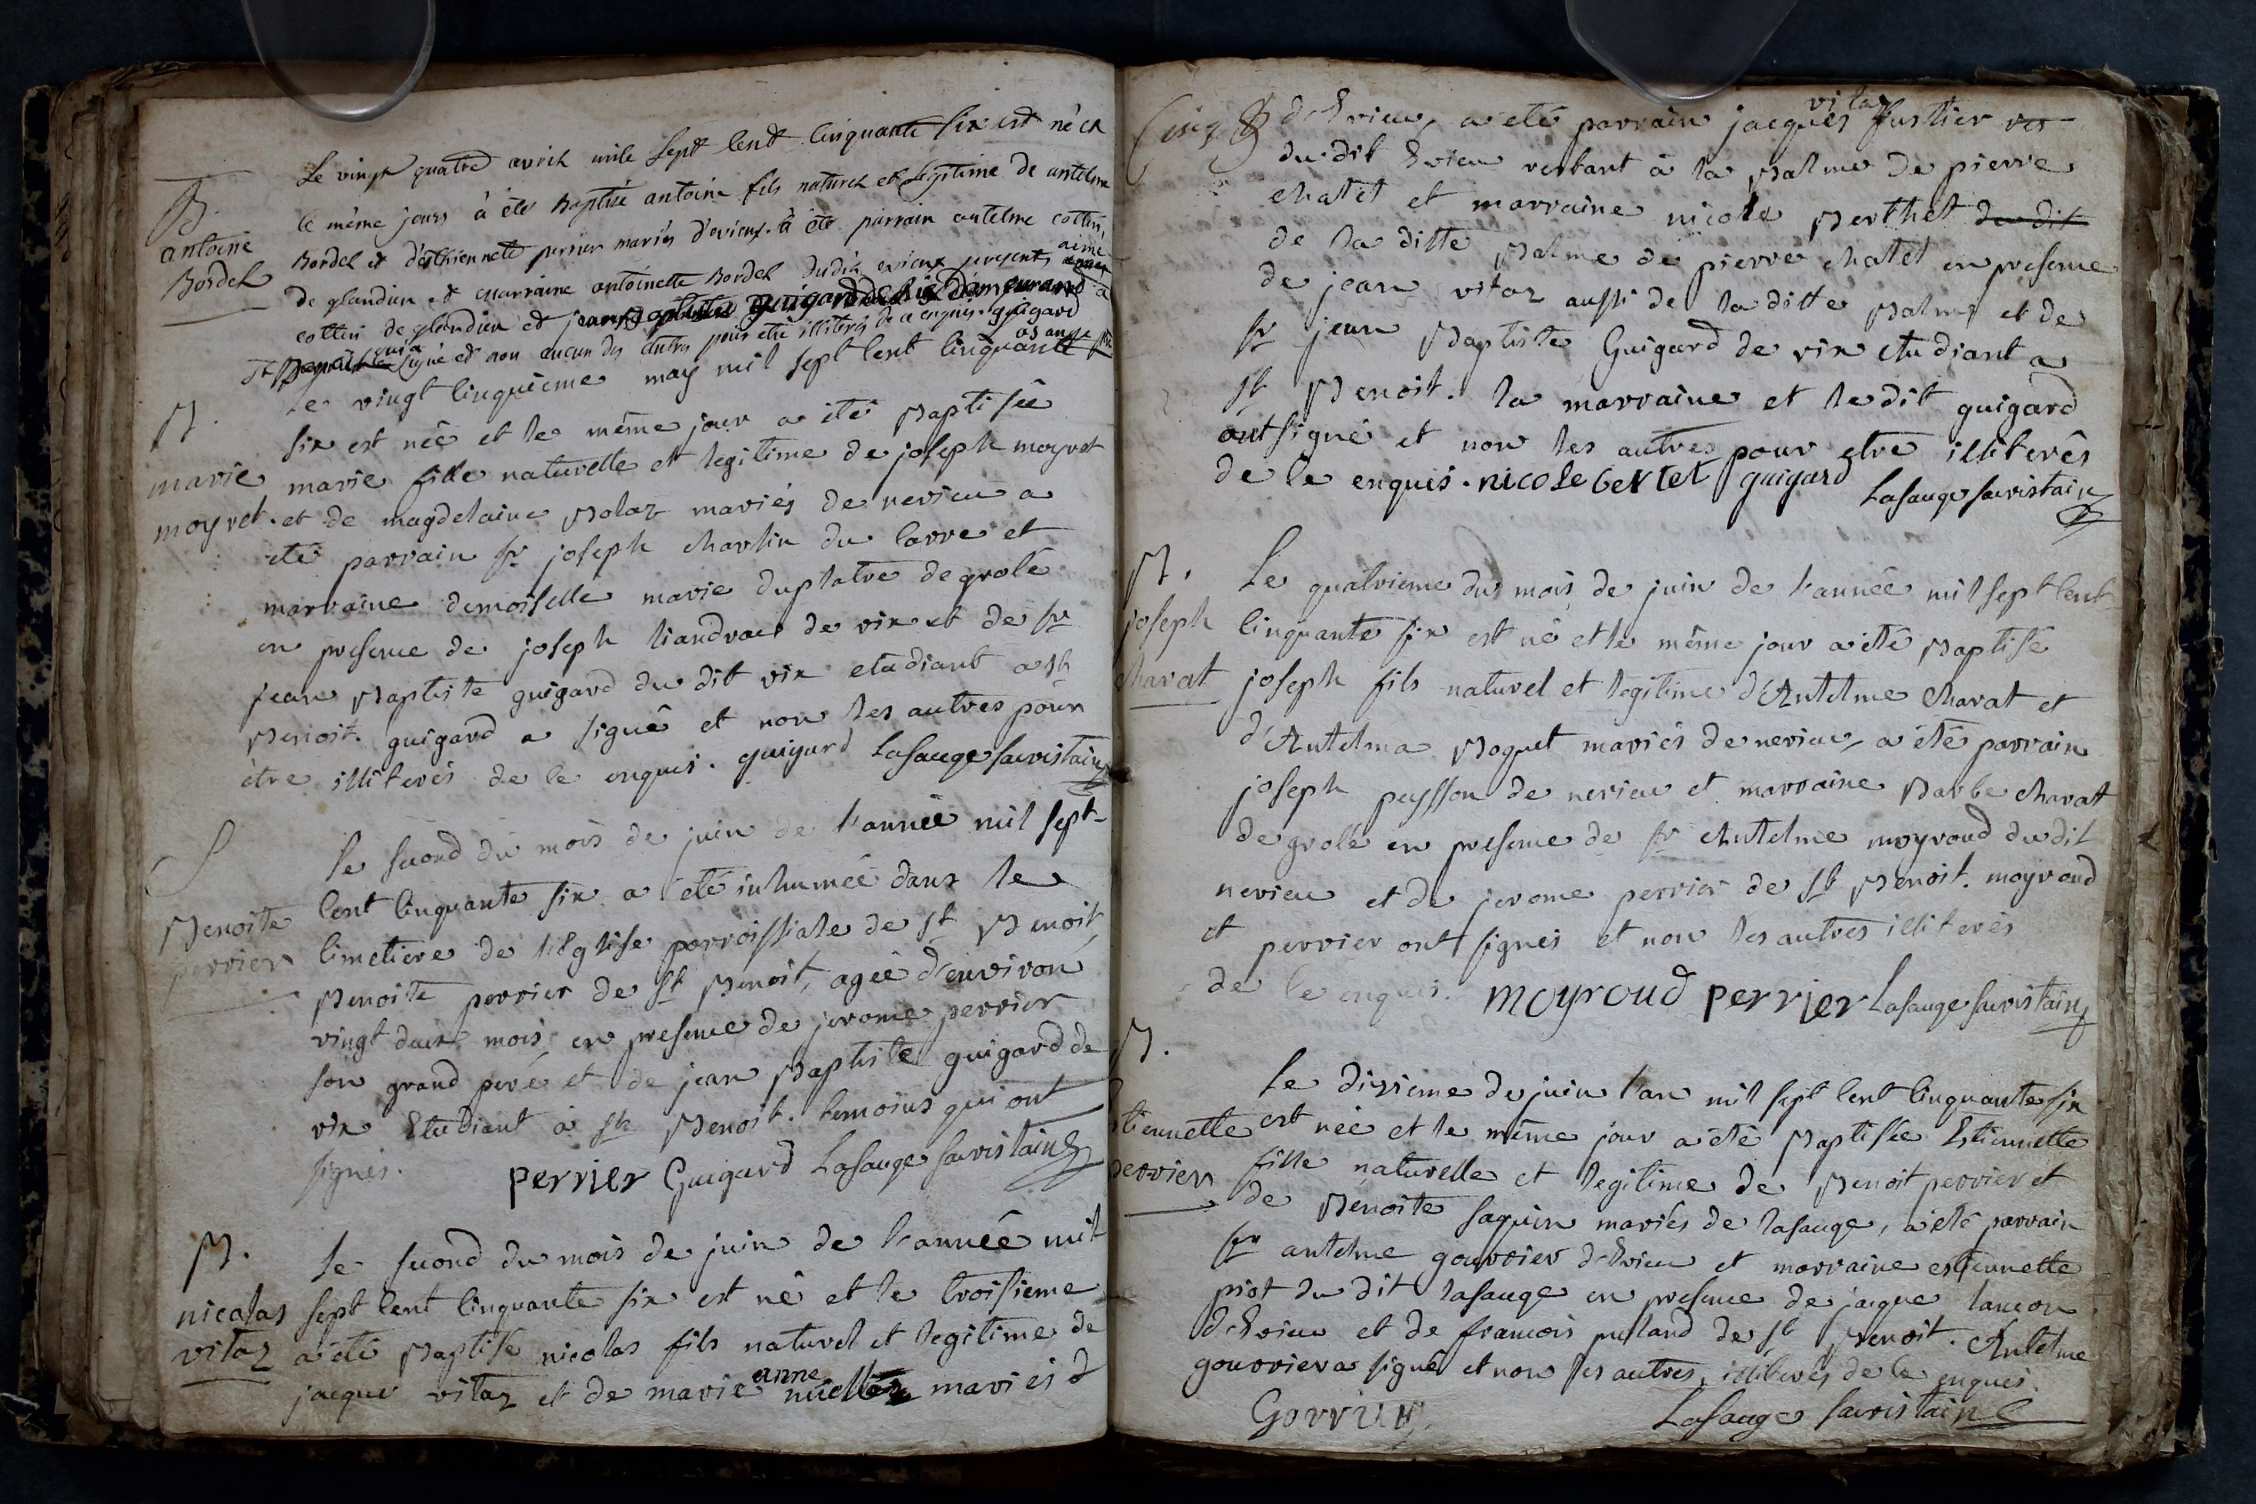 B.
antoine
Bordel
Le vingt quatre avrill mile Sept Cent Cinquante Six est né et
le même jours à été Baptisé antoine fils naturel et légitime de antelme
Bordel et d'esthiennette perrier mariés d'evieux. à été parrain antelme cottin,
de glandieu et marraine antoinette Bordel dudit evieux present, aimé
cottin de glandieu et jean baptiste guigard de vix demeurant à
St Benoit qui a signé et non aucun des autres pour etre illiterés de ce enquis. guigard
B.
marie
moyret.
Le vingt Cinquieme may mil sept Cent Cinquante
six est née et le même jour a été Baptisée
marie fille naturelle et legitime de joseph moyret
et de magdelaine Bolaz mariés de nerieu a
été parrain Sr joseph charlin du Carre et
marraine demoiselle marie duplatre de grolé
en presence de joseph liandras de vix et de Sr
jean Baptiste guigard du dit vix etudiant a St
Benoit. guigard a signé et non les autres pour
être illiterés de ce enquis. guigard Lasauge sacristain
S
Benoite
perrier
Le second du mois de juin de l'année mil sept-
Cent Cinquante six a été inhumée dans le
Cimetiere de l'Eglise parroissiale de St Benoit,
Benoite perrier de St Benoit, agée d'environ
vingt deux mois, en presence de jerome perrier
son grand pere et de jean Baptiste guigard de
vix Etudiant à St Benoit. temoins qui ont
signés. perrier Guigard Lasauge sacristain
B.
nicolas
vitoz
Le second du mois de juin de l'année mil
sept Cent Cinquante six est né et le troisieme
a été Baptisé nicolas fils naturel et legitime de
jacque vitoz et de marie anne mariés d
Cinq B d'Evieu, a eté parrain jacques vitoz fustier
du dit Evieu restant à la Balme de pierre
chatel et marraine nicole Berthet du dit
de la ditte Balme de pierre chatel en presence
de jean vitoz aussi de la ditte Balme et de
Sr jean Baptiste Guigard de vix etudiant a
St Benoit. la marraine et le dit guigard
ont signé et non les autres pour etre illiterés
de ce enquis. nicole bertet guigard
Lasauge sacristain
B.
joseph
charat
Le quatrieme du mois de juin de l'année mil sept Cent
Cinquante six est né et le même jour a été Baptisé
joseph fils naturel et legitime d'Antelme Charat et
d'Antelma Boquet mariés de nerieu, a été parrain
joseph peysson de nerieu et marraine Barbe charat
de grolé en presence de Sr Antelme moyroud du dit
nerieu et de jerome perrier de St Benoit. moyroud
et perrier ont signés et non les autres illiterés
de ce enquis. moyroud perrier Lasauge sacristain
B.
Etiennette
perrier
Le dixieme de juin l'an mil sept Cent Cinquante six
est née et le même jour a été Baptisée Estiennette
fille naturelle et legitime de Benoit perrier et
de Benoite saquin mariés de lasauge, a été parrain
Sr antelme gourrier d'Evieu et marraine estiennette
piot du dit lasauge en presence de jacque lancon
d'Evieu et de francois puland de St Benoit. Antelme
gourrier a signé et non les autres, illiterés de ce enquis.
Gorrier. Lasauge sacristain